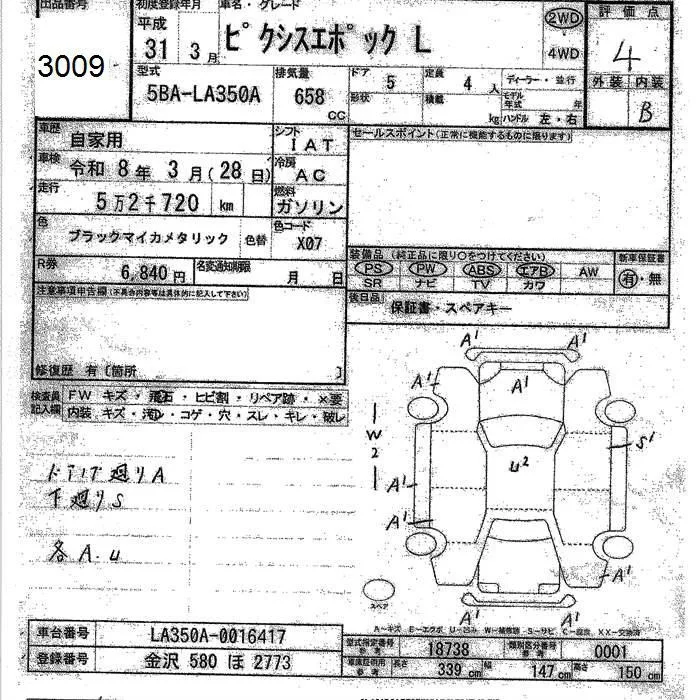 出品番号
3009
初度登録年月
平成
31 3月
車名・グレード
ピクシスエポック L
2WD
4WD
評価点
4
外装 内装
B
型式
5BA-LA350A
排気量
658
CC
ドア 5
形状
定員 4 人
積載 kg
ディーラー・並行
モデル年式 年
ハンドル 左・右
車歴 自家用
シフト IAT
車検 令和 8年 3月(28日)
冷房 AC
走行 5万2千720 km
燃料 ガソリン
色 ブラックマイカメタリック 色替
色コード X07
R券 6,840円
名変通知期限 月 日
セールスポイント(正常に機能するものに限ります)
装備品(純正品に限り○をつけてください)
PS PW ABS エアB AW
SR ナビ TV カワ
新車保証書
有・無
後日品 保証書・スペアキー
注意事項申告欄(不具合内容等は具体的に記入して下さい)
修復歴 有〔箇所 〕
検査員記入欄
FW キズ・飛石・ヒビ割・リペア跡・×要
内装 キズ・汚レ・コゲ・穴・スレ・キレ・破レ
ドアエッヂ廻りA
下廻りS
各A.U
A1 A1
A1 A1
W2
S1
U2
A1
A1
A1
A1 A1
スペア
A-キズ E-エクボ U-凹み W-補修跡 S-サビ C-腐食 XX-交換済
車台番号 LA350A-0016417
登録番号 金沢 580 ほ 2773
型式指定番号 参考 18738
類別区分番号 参考 0001
車庫証明用 参考 長さ 339cm 幅 147cm 高さ 150cm